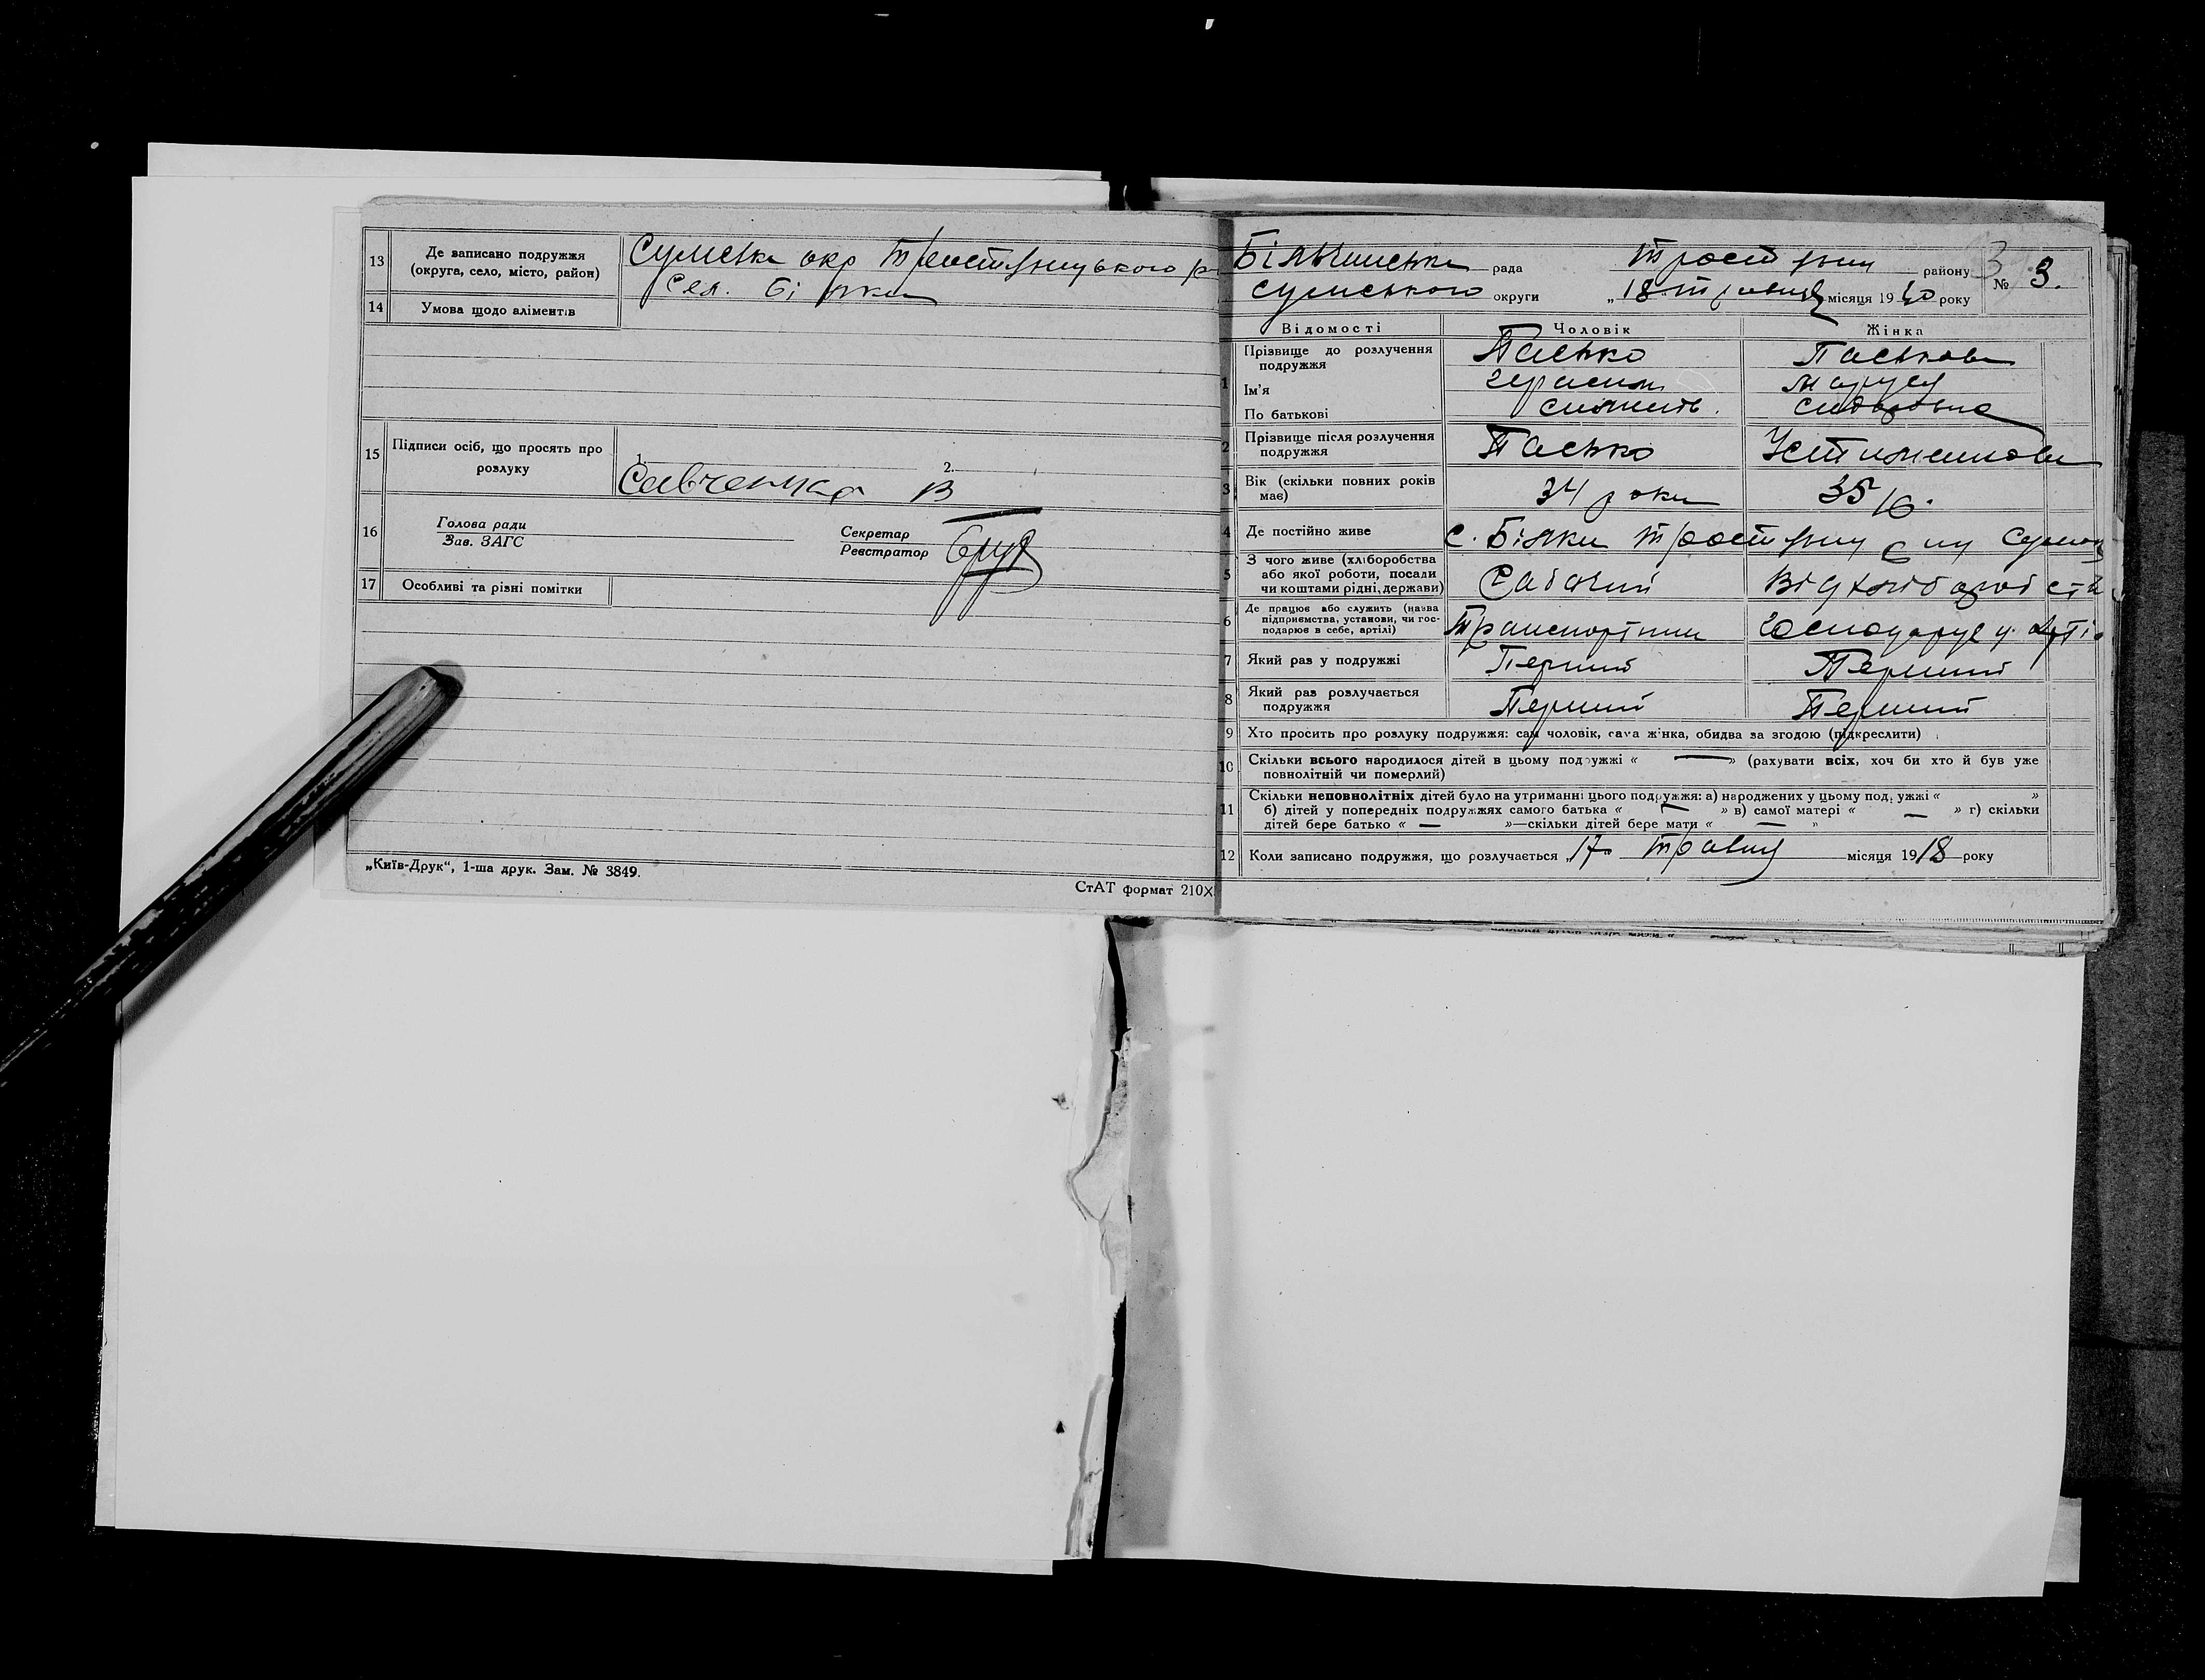 13 Де записано подружжя (округа, село, місто, район) Сумська окр Тростянуцького р
Сел. Білка
14 Умова щодо аліментів
15 Підписи осіб, що просять про розлуку 1. 2.
Савченко В
16 Голова ради Зав. ЗАГС Секретар Реєстратор
17 Особливі та різні помітки
„Київ-Друк“, 1-ша друк. Зам. № 3849.
СтАТ формат 210X
рада району № 3.
Сумського округи „18 травня місяця 1930 року
Відомості Чоловік Жінка
1 Прізвище до розлучення подружжя Пасько Паськова
Ім'я Герасим Маруся
По батькові Сидоровна
2 Прізвище після розлучення подружжя Пасько
3 Вік (скільки повних років має) 34 роки 35
4 Де постійно живе с. Білки
5 З чого живе (хліборобства або якої роботи, посади чи коштами рідні, держави) Від хліборобств
6 Де працює або служить (назва підприємства, установи, чи господарює в себе, артілі) Транспортник Господарує у
7 Який раз у подружжі Перший Перший
8 Який раз розлучається подружжя Перший Перший
9 Хто просить про розлуку подружжя: сам чоловік, сама жінка, обидва за згодою (підкреслити)
10 Скільки всього народилося дітей в цьому подружжі « — » (рахувати всіх, хоч би хто й був уже
повнолітній чи померлий)
11 Скільки неповнолітніх дітей було на утриманні цього подружжя: а) народжених у цьому подружжі « »
б) дітей у попередніх подружжях самого батька « — » в) самої матері « — » г) скільки
дітей бере батько « — »—скільки дітей бере мати « — »
12 Коли записано подружжя, що розлучається „17“ травня місяця 1918 року